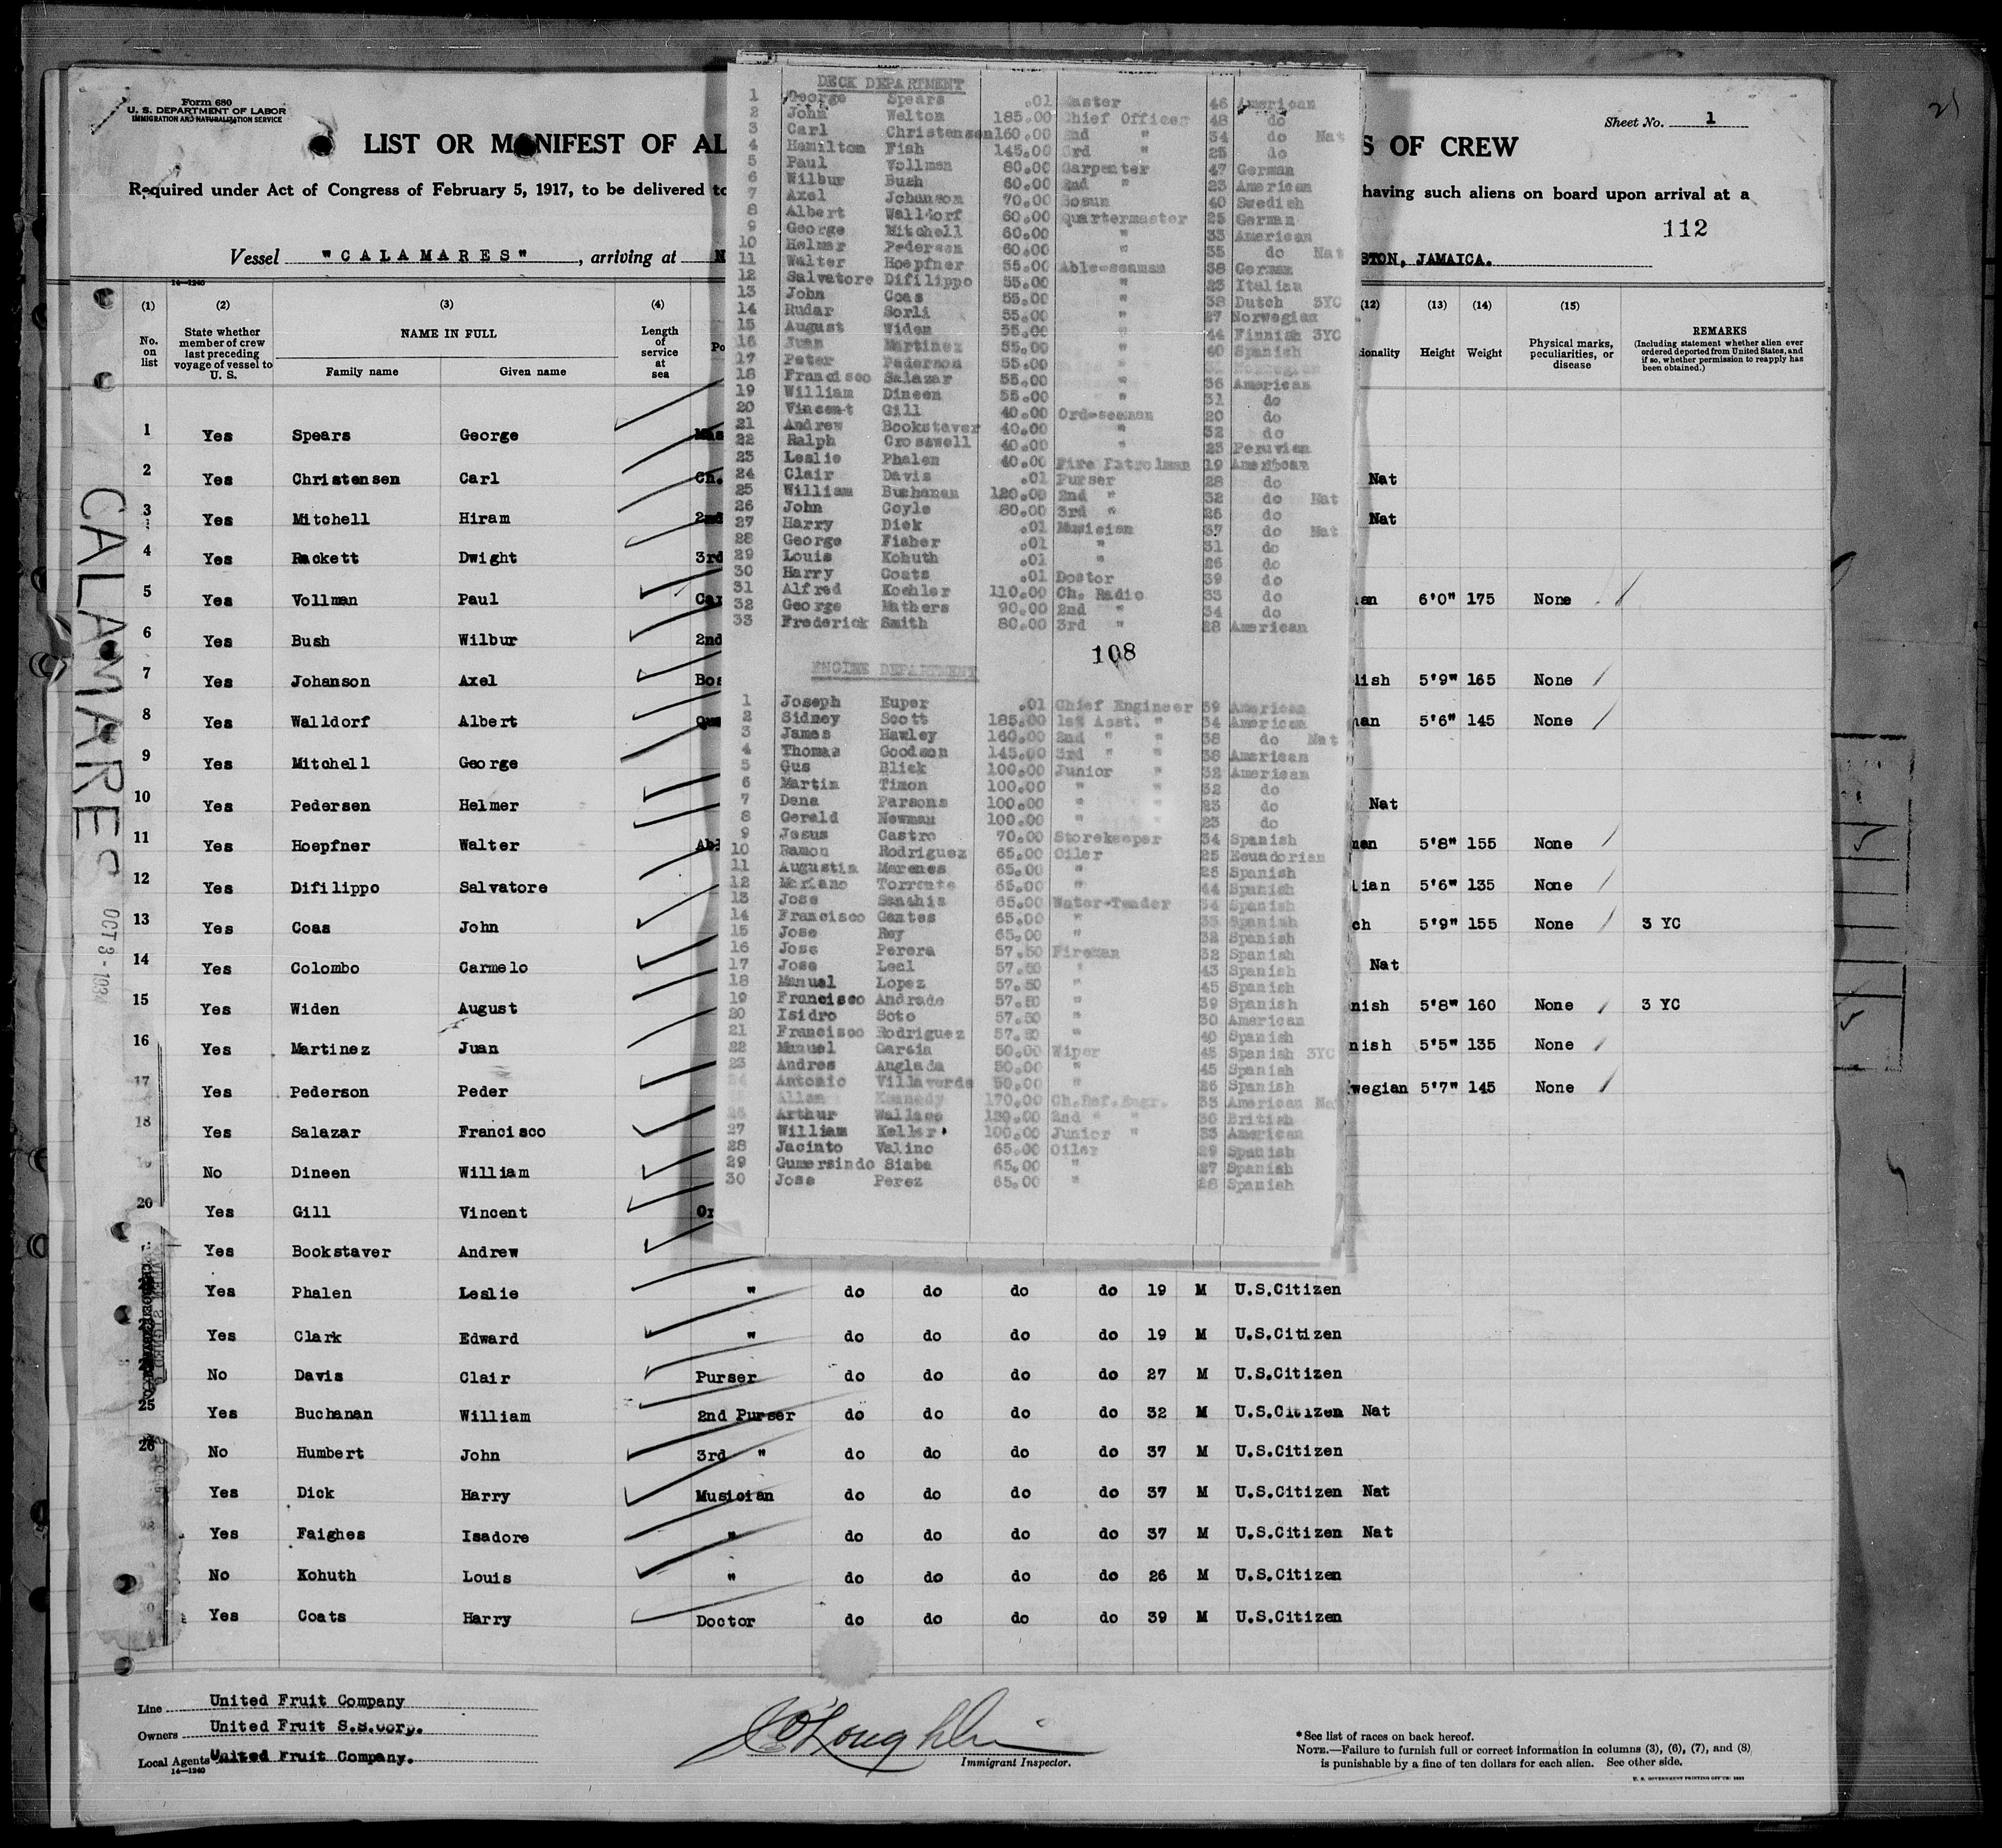 Form 680
U. S. DEPARTMENT OF LABOR
IMMIGRATION AND NATURALIZATION SERVICE
Sheet No. 1
LIST OR MANIFEST OF AL
S OF CREW
Required under Act of Congress of February 5, 1917, to be delivered to
having such aliens on board upon arrival at a
112
Vessel "CALAMARES", arriving at N
STON, JAMAICA.
14—1240
(1) (2) (3) (4) (12) (13) (14) (15)
No. on list
State whether member of crew last preceding voyage of vessel to U. S.
NAME IN FULL
Family name Given name
Length of service at sea
Po
ionality Height Weight
Physical marks, peculiarities, or disease
REMARKS
(Including statement whether alien ever ordered deported from United States, and if so, whether permission to reapply has been obtained.)
CALAMARES
OCT 3 - 1934
1 Yes Spears George Mas
2 Yes Christensen Carl Ch. Nat
3 Yes Mitchell Hiram 2nd Nat
4 Yes Rackett Dwight 3rd
5 Yes Vollman Paul Car an 6'0" 175 None
6 Yes Bush Wilbur 2nd
7 Yes Johanson Axel Bos lish 5'9" 165 None
8 Yes Walldorf Albert Qua an 5'6" 145 None
9 Yes Mitchell George
10 Yes Pedersen Helmer Nat
11 Yes Hoepfner Walter Abl man 5'8" 155 None
12 Yes Difilippo Salvatore lian 5'6" 135 None
13 Yes Coas John ch 5'9" 155 None 3 YC
14 Yes Colombo Carmelo Nat
15 Yes Widen August nish 5'8" 160 None 3 YC
16 Yes Martinez Juan nish 5'5" 135 None
17 Yes Pederson Peder wegian 5'7" 145 None
18 Yes Salazar Francisco
No Dineen William
20 Yes Gill Vincent Or
Yes Bookstaver Andrew
Yes Phalen Leslie " do do do do 19 M U.S.Citizen
Yes Clark Edward " do do do do 19 M U.S.Citizen
No Davis Clair Purser do do do do 27 M U.S.Citizen
25 Yes Buchanan William 2nd Purser do do do do 32 M U.S.Citizen Nat
26 No Humbert John 3rd " do do do do 37 M U.S.Citizen
Yes Dick Harry Musician do do do do 37 M U.S.Citizen Nat
Yes Faighes Isadore " do do do do 37 M U.S.Citizen Nat
No Kohuth Louis " do do do do 26 M U.S.Citizen
Yes Coats Harry Doctor do do do do 39 M U.S.Citizen
DECK DEPARTMENT
1 George Spears .01 Master 46 American
2 John Welton 185.00 Chief Officer 48 do
3 Carl Christensen 160.00 2nd " 34 do Nat
4 Hamilton Fish 145.00 3rd " 25 do
5 Paul Vollman 80.00 Carpenter 47 German
6 Wilbur Bush 60.00 2nd " 23 American
7 Axel Johanson 70.00 Bosun 40 Swedish
8 Albert Walldorf 60.00 Quartermaster 25 German
9 George Mitchell 60.00 " 33 American
10 Helmer Pedersen 60.00 " 35 do Nat
11 Walter Hoepfner 55.00 Able-seaman 38 German
12 Salvatore Difilippo 55.00 " 23 Italian
13 John Coas 55.00 " 38 Dutch 3YC
14 Rudar Sorli 55.00 " 27 Norwegian
15 August Widen 55.00 " 44 Finnish 3YC
16 Juan Martinez 55.00 " 40 Spanish
17 Peter Pederson 55.00 "
18 Francisco Salazar 55.00 " 36 American
19 William Dineen 55.00 " 31 do
20 Vincent Gill 40.00 Ord-seaman 20 do
21 Andrew Bookstaver 40.00 " 32 do
22 Ralph Crosswell 40.00 " 23 Peruvian
23 Leslie Phalen 40.00 Fire Patrolman 19 American
24 Clair Davis .01 Purser 28 do
25 William Buchanan 120.00 2nd " 32 do Nat
26 John Coyle 80.00 3rd " 26 do
27 Harry Dick .01 Musician 37 do Nat
28 George Fisher .01 " 31 do
29 Louis Kohuth .01 " 26 do
30 Harry Coats .01 Doctor 39 do
31 Alfred Koehler 110.00 Ch. Radio 33 do
32 George Mathers 90.00 2nd " 34 do
33 Frederick Smith 80.00 3rd " 28 American
108
ENGINE DEPARTMENT
1 Joseph Euper .01 Chief Engineer 59 American
2 Sidney Scott 185.00 1st Asst. " 34 American
3 James Hawley 160.00 2nd " " 38 do Nat
4 Thomas Goodson 145.00 3rd " " 38 American
5 Gus Blick 100.00 Junior " 32 American
6 Martin Timon 100.00 " " 32 do
7 Dana Parsons 100.00 " " 23 do
8 Gerald Newman 100.00 " " 23 do
9 Jesus Castro 70.00 Storekeeper 34 Spanish
10 Ramon Rodriguez 65.00 Oiler 25 Ecuadorian
11 Augustin Marenes 65.00 " 26 Spanish
12 Mariano Torrente 65.00 " 44 Spanish
13 Jose Senthis 65.00 Water-Tender 34 Spanish
14 Francisco Gantes 65.00 " 35 Spanish
15 Jose Rey 65.00 " 32 Spanish
16 Jose Perera 57.50 Fireman 32 Spanish
17 Jose Leal 57.50 " 43 Spanish
18 Manuel Lopez 57.50 " 45 Spanish
19 Francisco Andrade 57.50 " 39 Spanish
20 Isidro Soto 57.50 " 30 American
21 Francisco Rodriguez 57.50 " 40 Spanish
22 Manuel Garcia 50.00 Wiper 45 Spanish 3YC
23 Andres Anglada 50.00 " 45 Spanish
24 Antonio Villaverde 50.00 " 26 Spanish
Allen Kennedy 170.00 Ch.Ref.Engr. 35 American Na
26 Arthur Wallace 130.00 2nd " " 36 British
27 William Keller 100.00 Junior " 33 American
28 Jacinto Valino 65.00 Oiler 29 Spanish
29 Gumersindo Siaba 65.00 " 27 Spanish
30 Jose Perez 65.00 " 28 Spanish
Line United Fruit Company
Owners United Fruit S.S.Corp.
Local Agents United Fruit Company.
14—1240
Immigrant Inspector.
*See list of races on back hereof.
NOTE.—Failure to furnish full or correct information in columns (3), (6), (7), and (8)
is punishable by a fine of ten dollars for each alien. See other side.